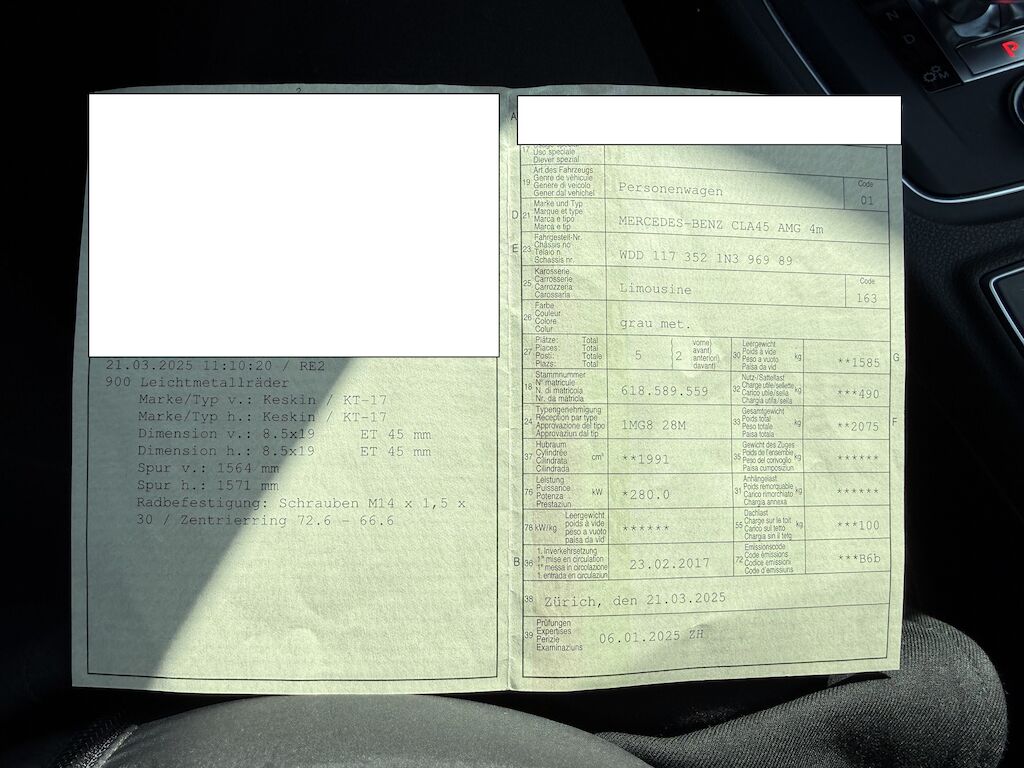 2
21.03.2025 11:10:20 / RE2
900 Leichtmetallräder
Marke/Typ v.: Keskin / KT-17
Marke/Typ h.: Keskin / KT-17
Dimension v.: 8.5x19 ET 45 mm
Dimension h.: 8.5x19 ET 45 mm
Spur v.: 1564 mm
Spur h.: 1571 mm
Radbefestigung: Schrauben M14 x 1,5 x
30 / Zentrierring 72.6 - 66.6
A
17
Uso speciale
Diever spezial
19
Art des Fahrzeugs
Genre de véhicule
Genere di veicolo
Gener dal vehichel
Personenwagen
Code
01
D
21
Marke und Typ
Marque et type
Marca e tipo
Marca e tip
MERCEDES-BENZ CLA45 AMG 4m
E
23
Fahrgestell-Nr.
Châssis no
Telaio n.
Schassis nr.
WDD 117 352 1N3 969 89
25
Karosserie
Carrosserie
Carrozzeria
Carossaria
Limousine
Code
163
26
Farbe
Couleur
Colore
Colur
grau met.
27
Plätze: Total
Places: Total
Posti: Totale
Plazs: Total
5
2
vorne)
avant)
anteriori)
davant)
30
Leergewicht
Poids à vide
Peso a vuoto
Paisa da vid
kg
**1585
G
18
Stammnummer
N° matricule
N. di matricola
Nr. da matricla
618.589.559
32
Nutz-/Sattellast
Charge utile/sellette
Carico utile/sella
Chargia utila/sella
kg
***490
24
Typengenehmigung
Réception par type
Approvazione del tipo
Approvaziun dal tip
1MG8 28M
33
Gesamtgewicht
Poids total
Peso totale
Paisa totala
kg
**2075
F
37
Hubraum
Cylindrée
Cilindrata
Cilindrada
cm³
**1991
35
Gewicht des Zuges
Poids de l'ensemble
Peso del convoglio
Paisa cumposiziun
kg
******
76
Leistung
Puissance
Potenza
Prestaziun
kW
*280.0
31
Anhängelast
Poids remorquable
Carico rimorchiato
Chargia annexa
kg
******
78 kW/kg
Leergewicht
poids à vide
peso a vuoto
paisa da vid
******
55
Dachlast
Charge sur le toit
Carico sul tetto
Chargia sin il tetg
kg
***100
B
36
1. Inverkehrsetzung
1re mise en circulation
1a messa in circolazione
1. entrada en circulaziun
23.02.2017
72
Emissionscode
Code émissions
Codice emissioni
Code d'emissiuns
***B6b
38
Zürich, den 21.03.2025
39
Prüfungen
Expertises
Perizie
Examinaziuns
06.01.2025 ZH
N
D
M
P